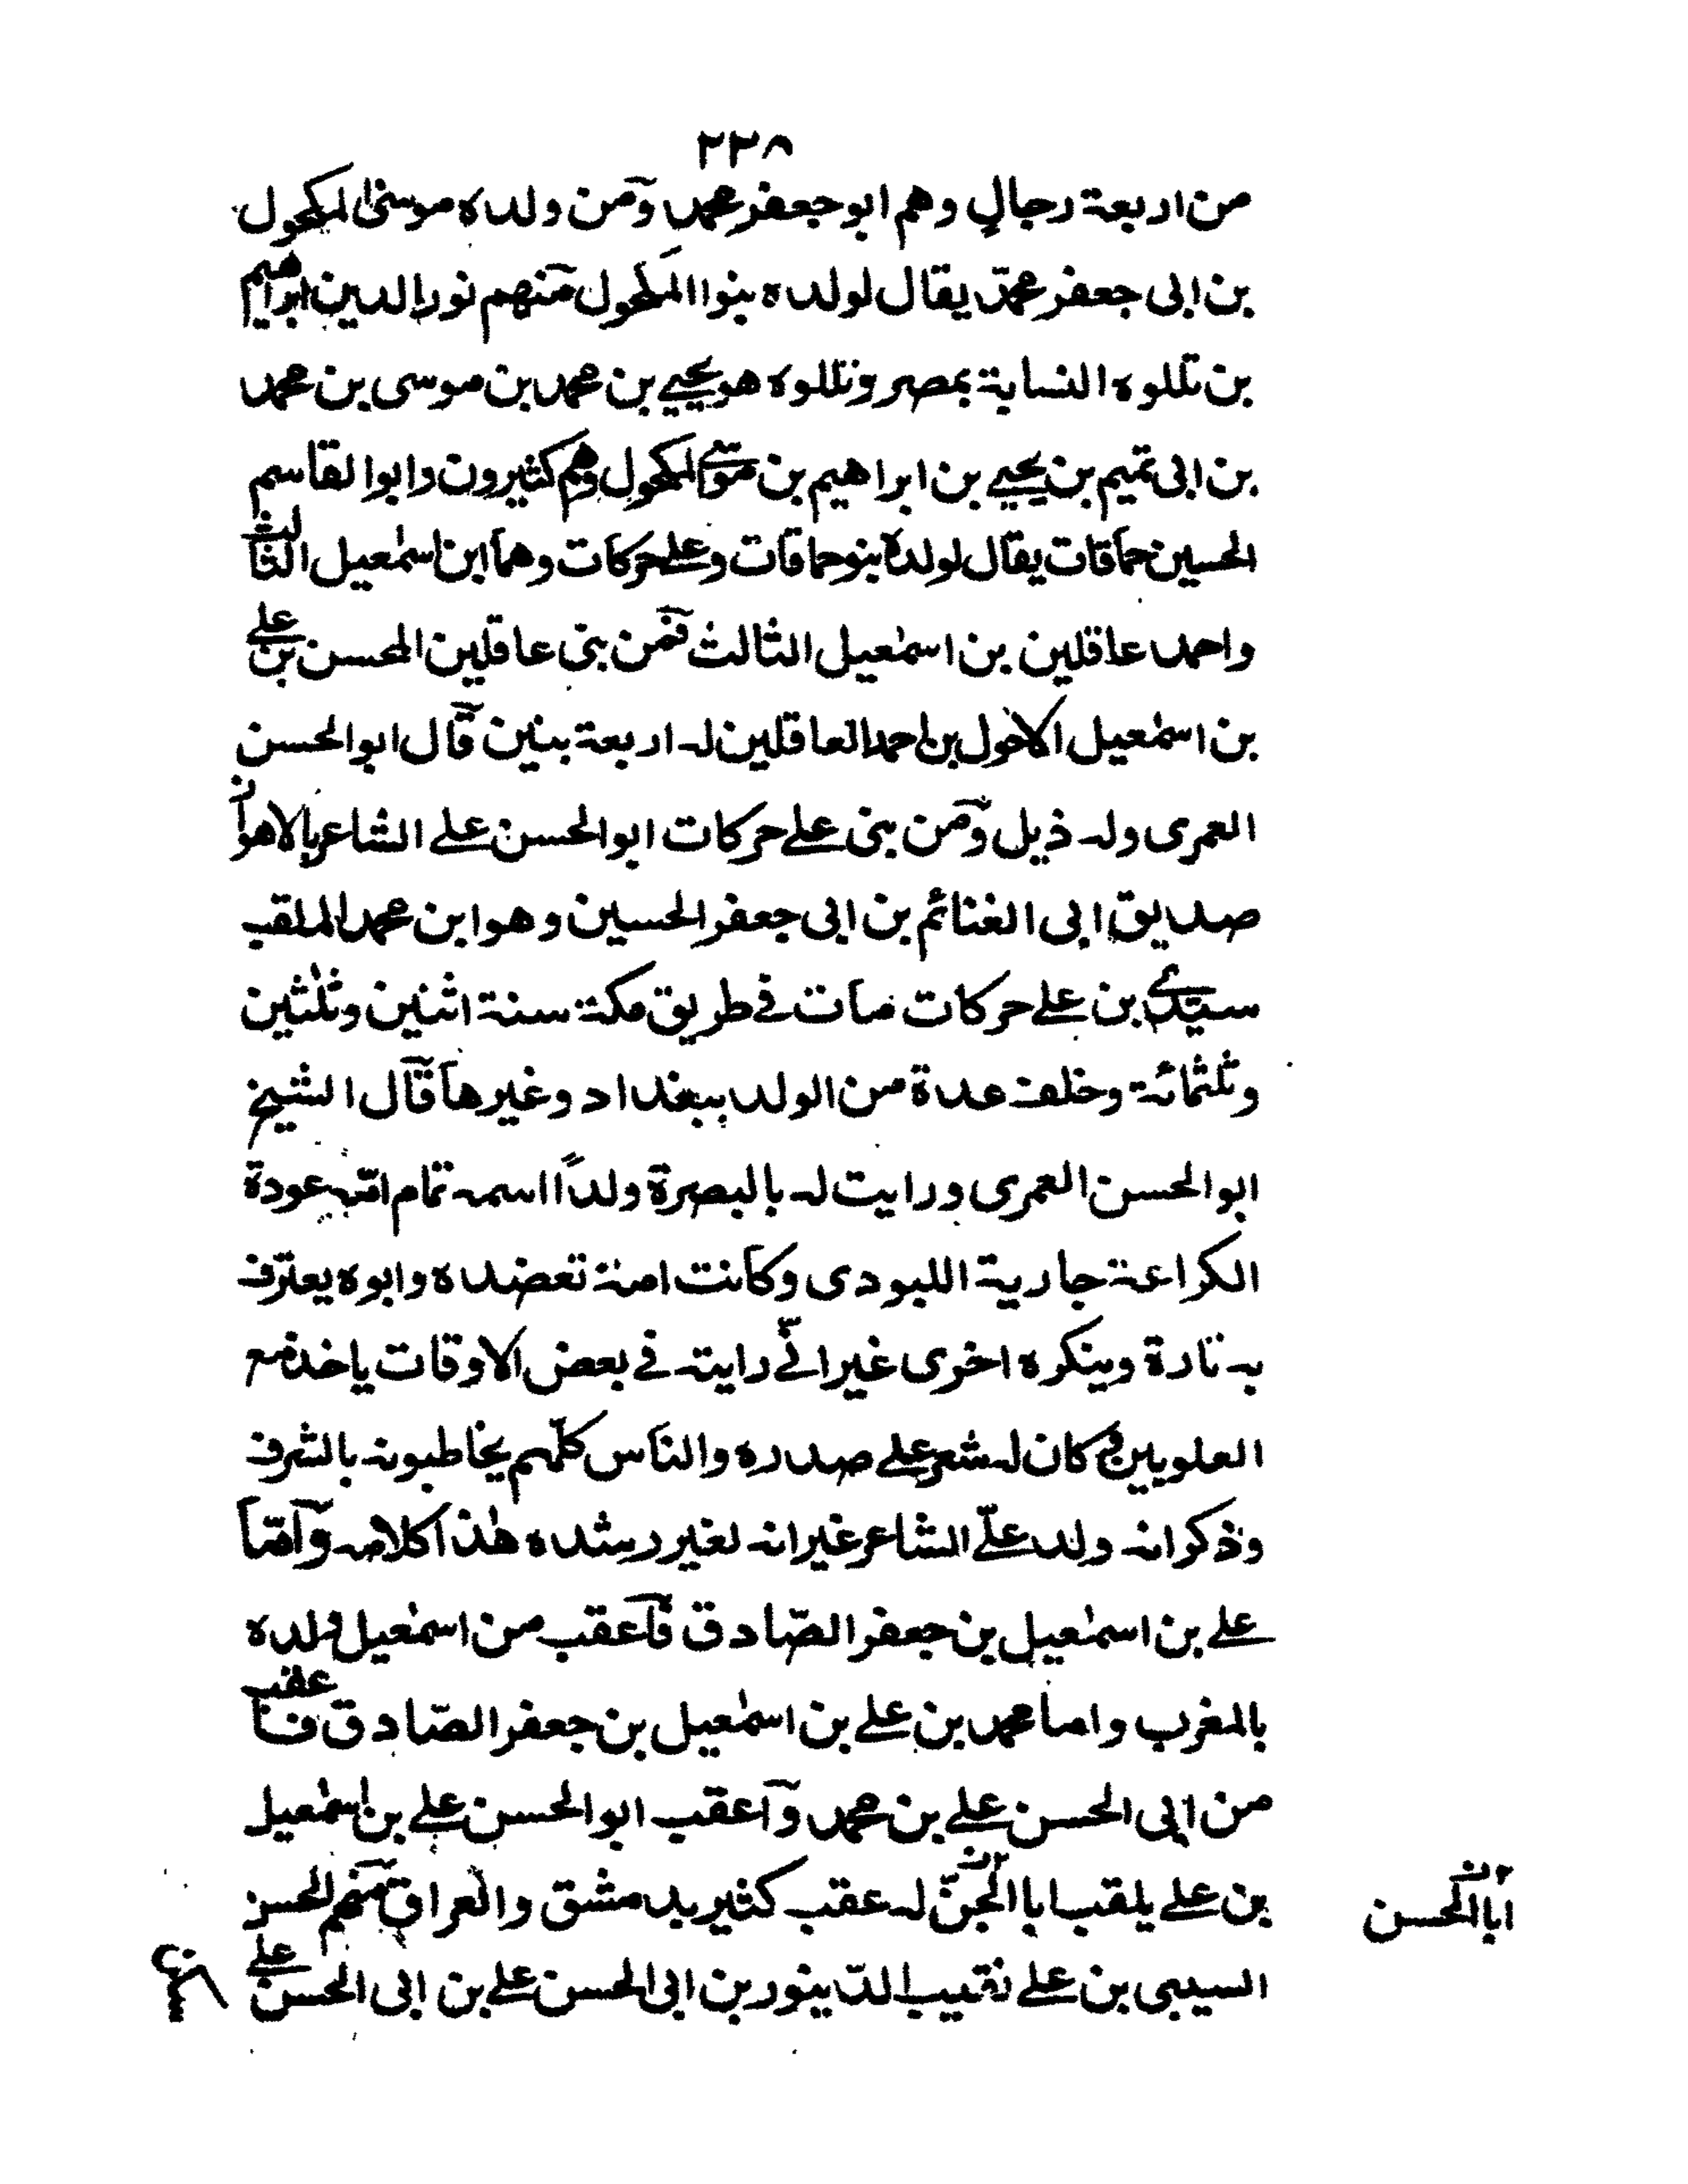 ٢٢٨
من اربعة رجال وهم ابو جعفر محمد ومن ولده موسى المكحول
بن ابى جعفر محمد يقال لولده بنوا المكحول منهم نور الدين ابراهيم
بن تللوه النسابة بمصر وتللوه هو يحيے بن محمد بن موسى بن محمد
بن ابى تميم بن يحيے بن ابراهيم بن موسے المكحول وهم كثيرون وابوا لقاسم
الحسين حماقات يقال لولده بنو حماقات وعلے حركات وهما ابن اسمٰعيل الثالث
واحمد عاقلين بن اسمٰعيل الثالث فمن بنى عاقلين المحسن بن علے
بن اسمٰعيل الاحول بن احمد العاقلين له اربعة بنين قال ابو الحسن
العمرى وله ذيل ومن بنى علے حركات ابو الحسن علے الشاعر بالاهواز
صديق ابى الغنائم بن ابى جعفر الحسين وهو ابن محمد الملقب
سيدے بن علے حركات مات فے طريق مكة سنة اثنين وثلٰثين
وثلثمائة وخلف عدة من الولد ببغداد وغيرها قال الشيخ
ابو الحسن العمرى ورايت له بالبصرة ولدًا اسمه تمام امّه عودة
الكراعة جارية اللبودى وكانت امنة تعضده وابوه يعترف
به تارة وينكره اخرى غير انّے رايته فے بعض الاوقات ياخذ مع
العلويين وكان له شعر علے صدره والناس كلّهم يخاطبونه بالشرف
وذكر انه ولد علّے الشاعر غير انه لغير رشده هٰذا كلامه وامّا
علے بن اسمٰعيل بن جعفر الصّادق فاعقب من اسمٰعيل ولده
بالمغرب واما محمد بن علے بن اسمٰعيل بن جعفر الصّادق فاعقب
من ابى الحسن علے بن محمد واعقب ابو الحسن علے بن اسمٰعيل
بن علے يلقب ابا الجنّ له عقب كثير بدمشق والعراق منهم الحسن
السيبى بن علے نقيب الدّينور بن ابى الحسن علے بن ابى الحسن علے
ابا الحسن